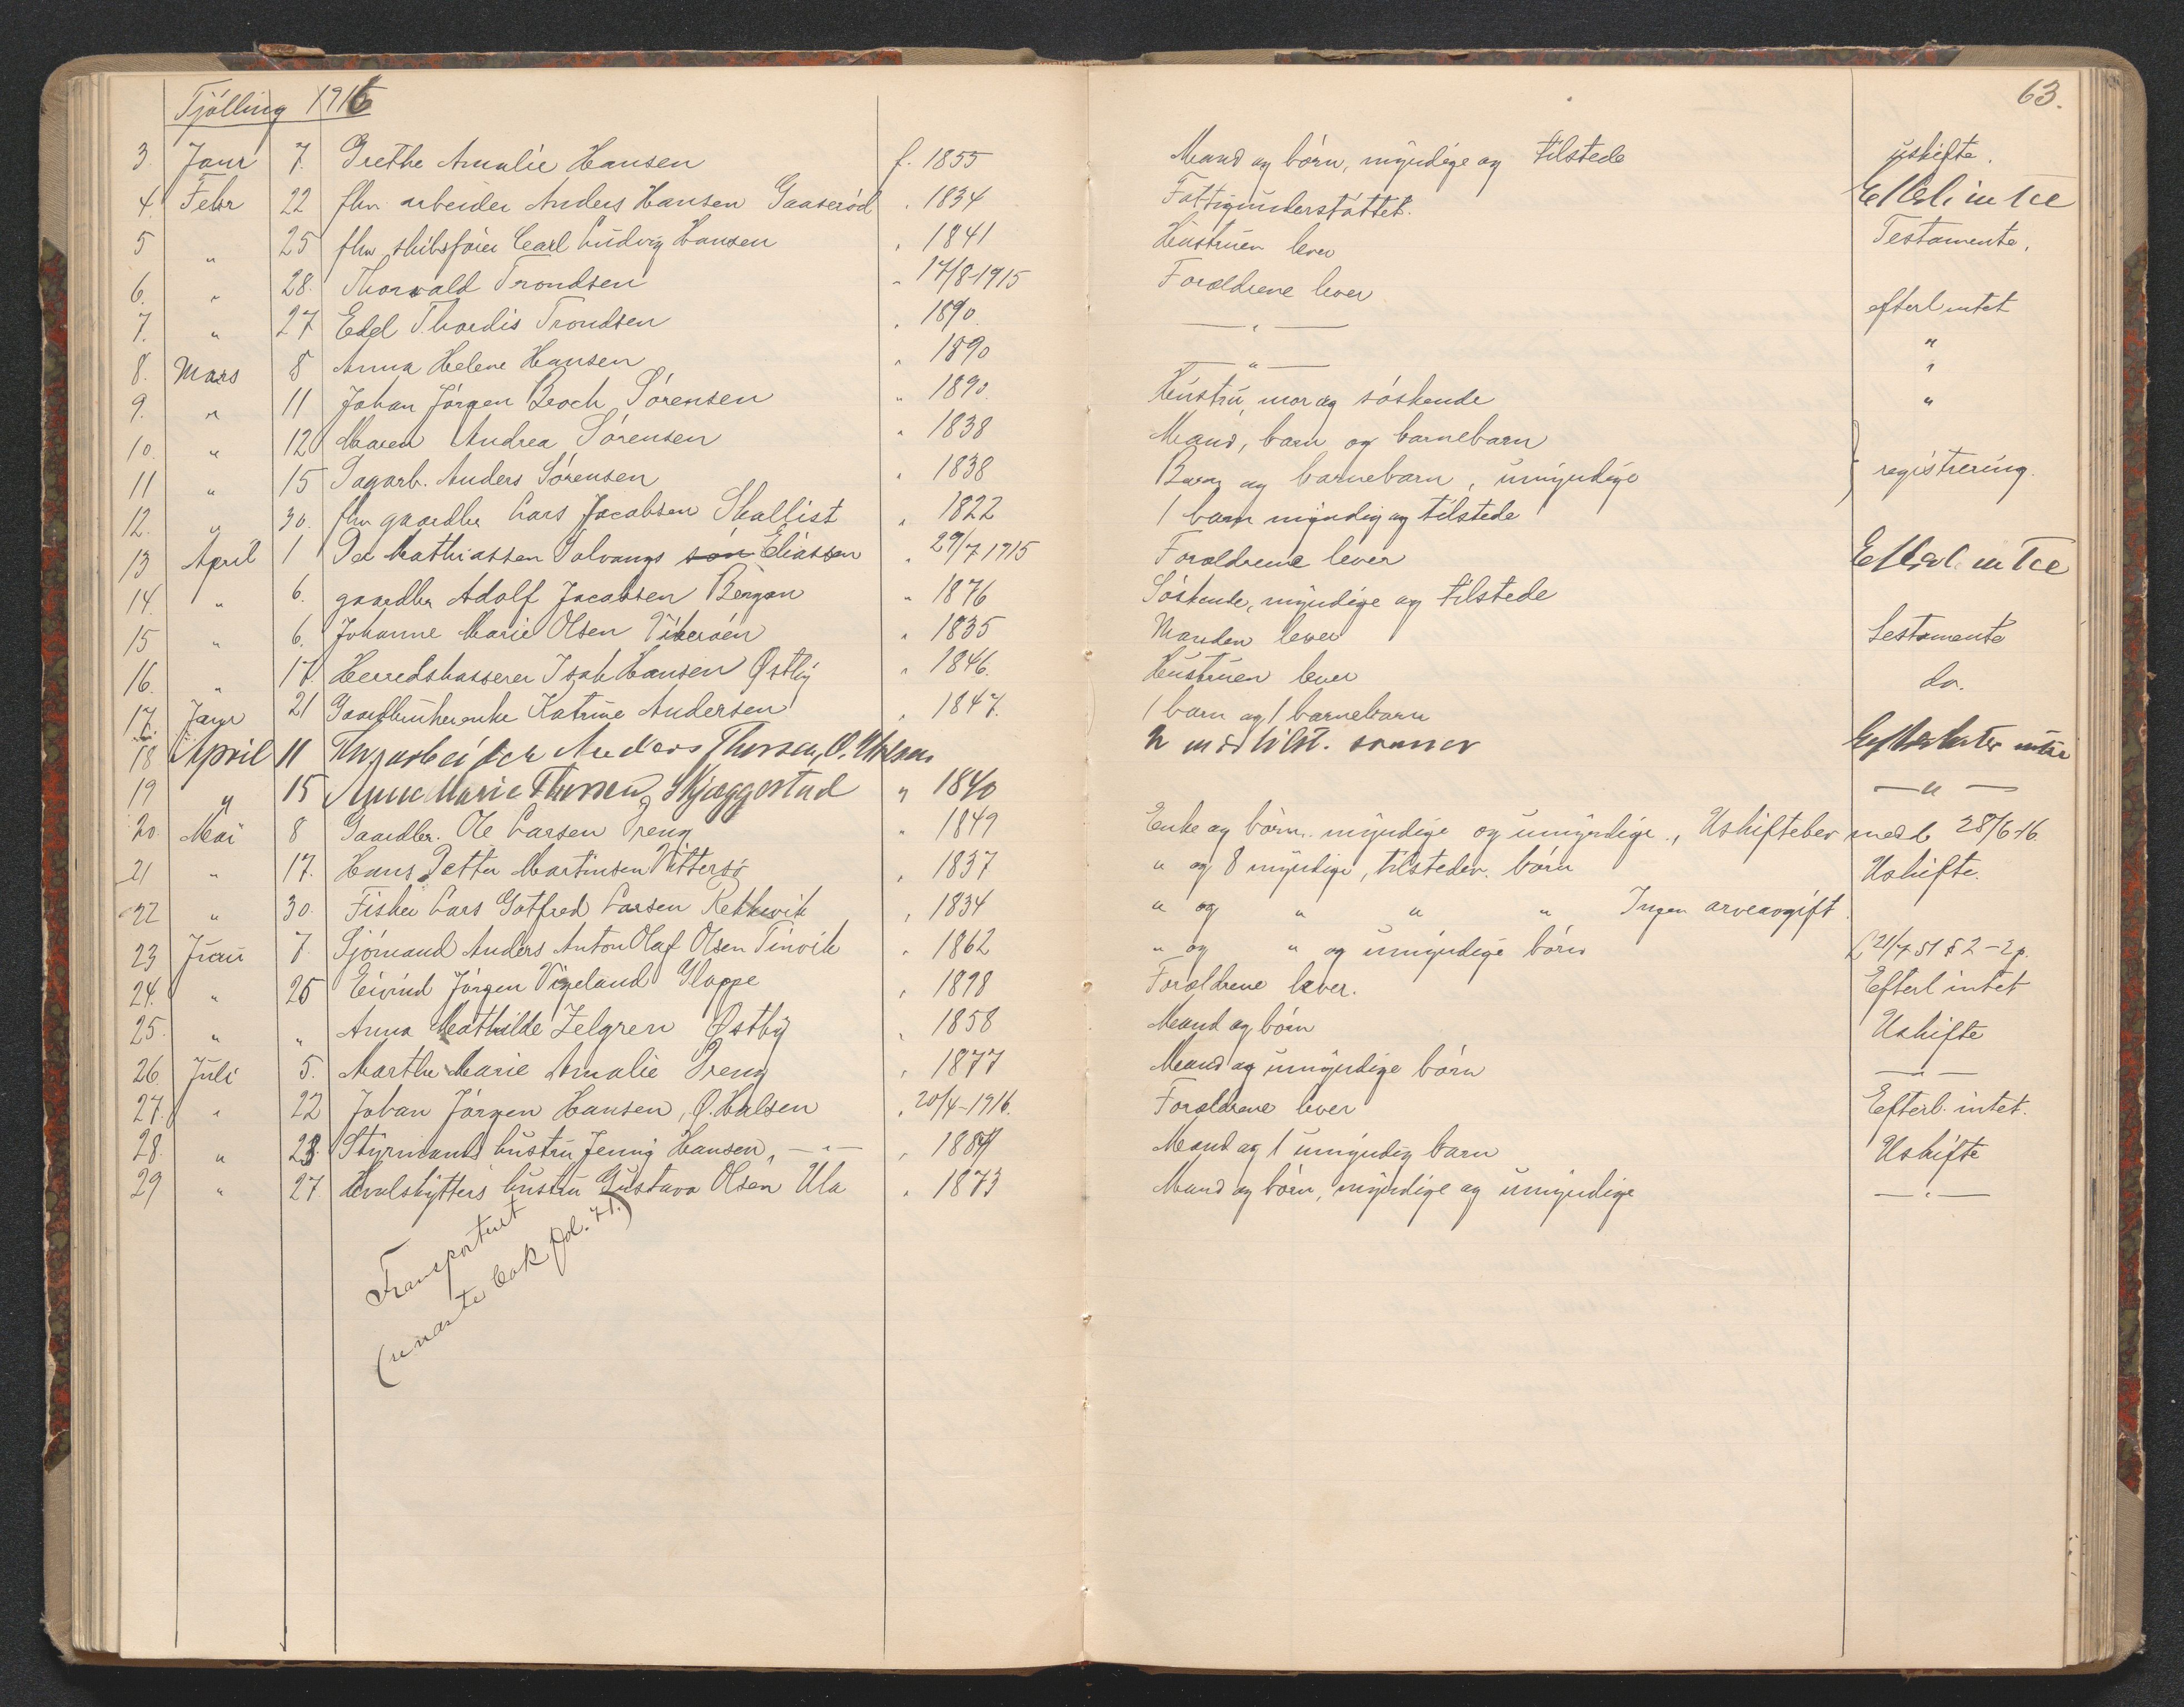 Tjölling 1916
63.
3. Janr 7. Grethe Amalie Hansen f. 1855 Mand og börn, myndige og tilstede uskifte.
4. Febr 22 fhv. arbeider Anders Hansen Gaaserød " 1834 Fattigunderstöttet. Efterl. intet
5 " 25 fhv skibsfører Carl Ludvig Hansen " 1841 Hustruen lever Testamente.
6. " 28. Thorvald Trondsen " 17/8-1915 Forældrene lever
7. " 27 Edel Thordis Trondsen " 1890 — " — efterl intet
8. Mars 8 Anna Helene Hansen " 1890 — " — "
9. " 11 Johan Jörgen Broch Sörensen " 1890 Hustru, mor og söskende "
10. " 12 Maren Andrea Sörensen " 1838 Mand, barn og barnebarn
11 " 15 Dagarb. Anders Sörensen " 1838 Barn og barnebarn, umyndige } registrering.
12. " 30. fhv gaardbr Lars Jacobsen Skallist " 1822 1 barn myndig og tilstede
13 April 1 Per Mathiassen Solvangs sön Eliassen " 29/7 1915 Forældrene lever Efterl. intet
14. " 6. gaardbr Adolf Jacobsen Bergan " 1876 Söskende, myndige og tilstede
15 " 6. Johanne Marie Olsen Vikerøen " 1835 Manden lever Testamente
16. " 17. Herredskasserer Isak Hansen Østby " 1846. Hustruen lever do.
17. Janr 21 Gaardbrukerenke Katrine Andersen " 1847. 1 barn og 1 barnebarn
18 April 11 Anders Thorsen, Ø. Halsen 2 tilst. sønner Efterlater intet
19 " 15 Anne Marie Thorsen, Skjæggestad " 1840 — " —
20. Mai 8 Gaardbr. Ole Larsen Øreng " 1849 Enke og börn myndige og umyndige, Uskiftebev medd. 28/6 16.
21 " 17. Hans Petter Martinsen Vittersø " 1837 " og 8 myndige, tilstedev. börn Uskifte.
22 " 30. Fisker Lars Gotfred Larsen Rekkevik " 1834 " og " " " Ingen arveavgift.
23 Juni 7. Sjömand Anders Anton Olaf Olsen Tinvik " 1862 " og " og umyndige börn L 21/7 51 § 2 - 2 p.
24. " 25 Eivind Jörgen Vigeland Gloppe " 1898 Forældrene lever. Efterl intet
25. " " Anna Mathilde Zelgren Østby " 1858 Mand og börn Uskifte
26. Juli 5. Marthe Marie Amalie Øreng " 1877 Mand og umyndige börn — " —
27. " 22 Johan Jörgen Hansen, Ø. Halsen " 20/4-1916. Forældrene lever Efterl. intet.
28. " 23. Styrmands hustru Jenny Hansen, — " — " 1884 Mand og 1 umyndig barn Uskifte
29 " 27 Hvalskytters hustru Gustava Olsen Ula " 1873 Mand og börn, myndige og umyndige — " —
Transporteret
(se næste bok fol. 71.)